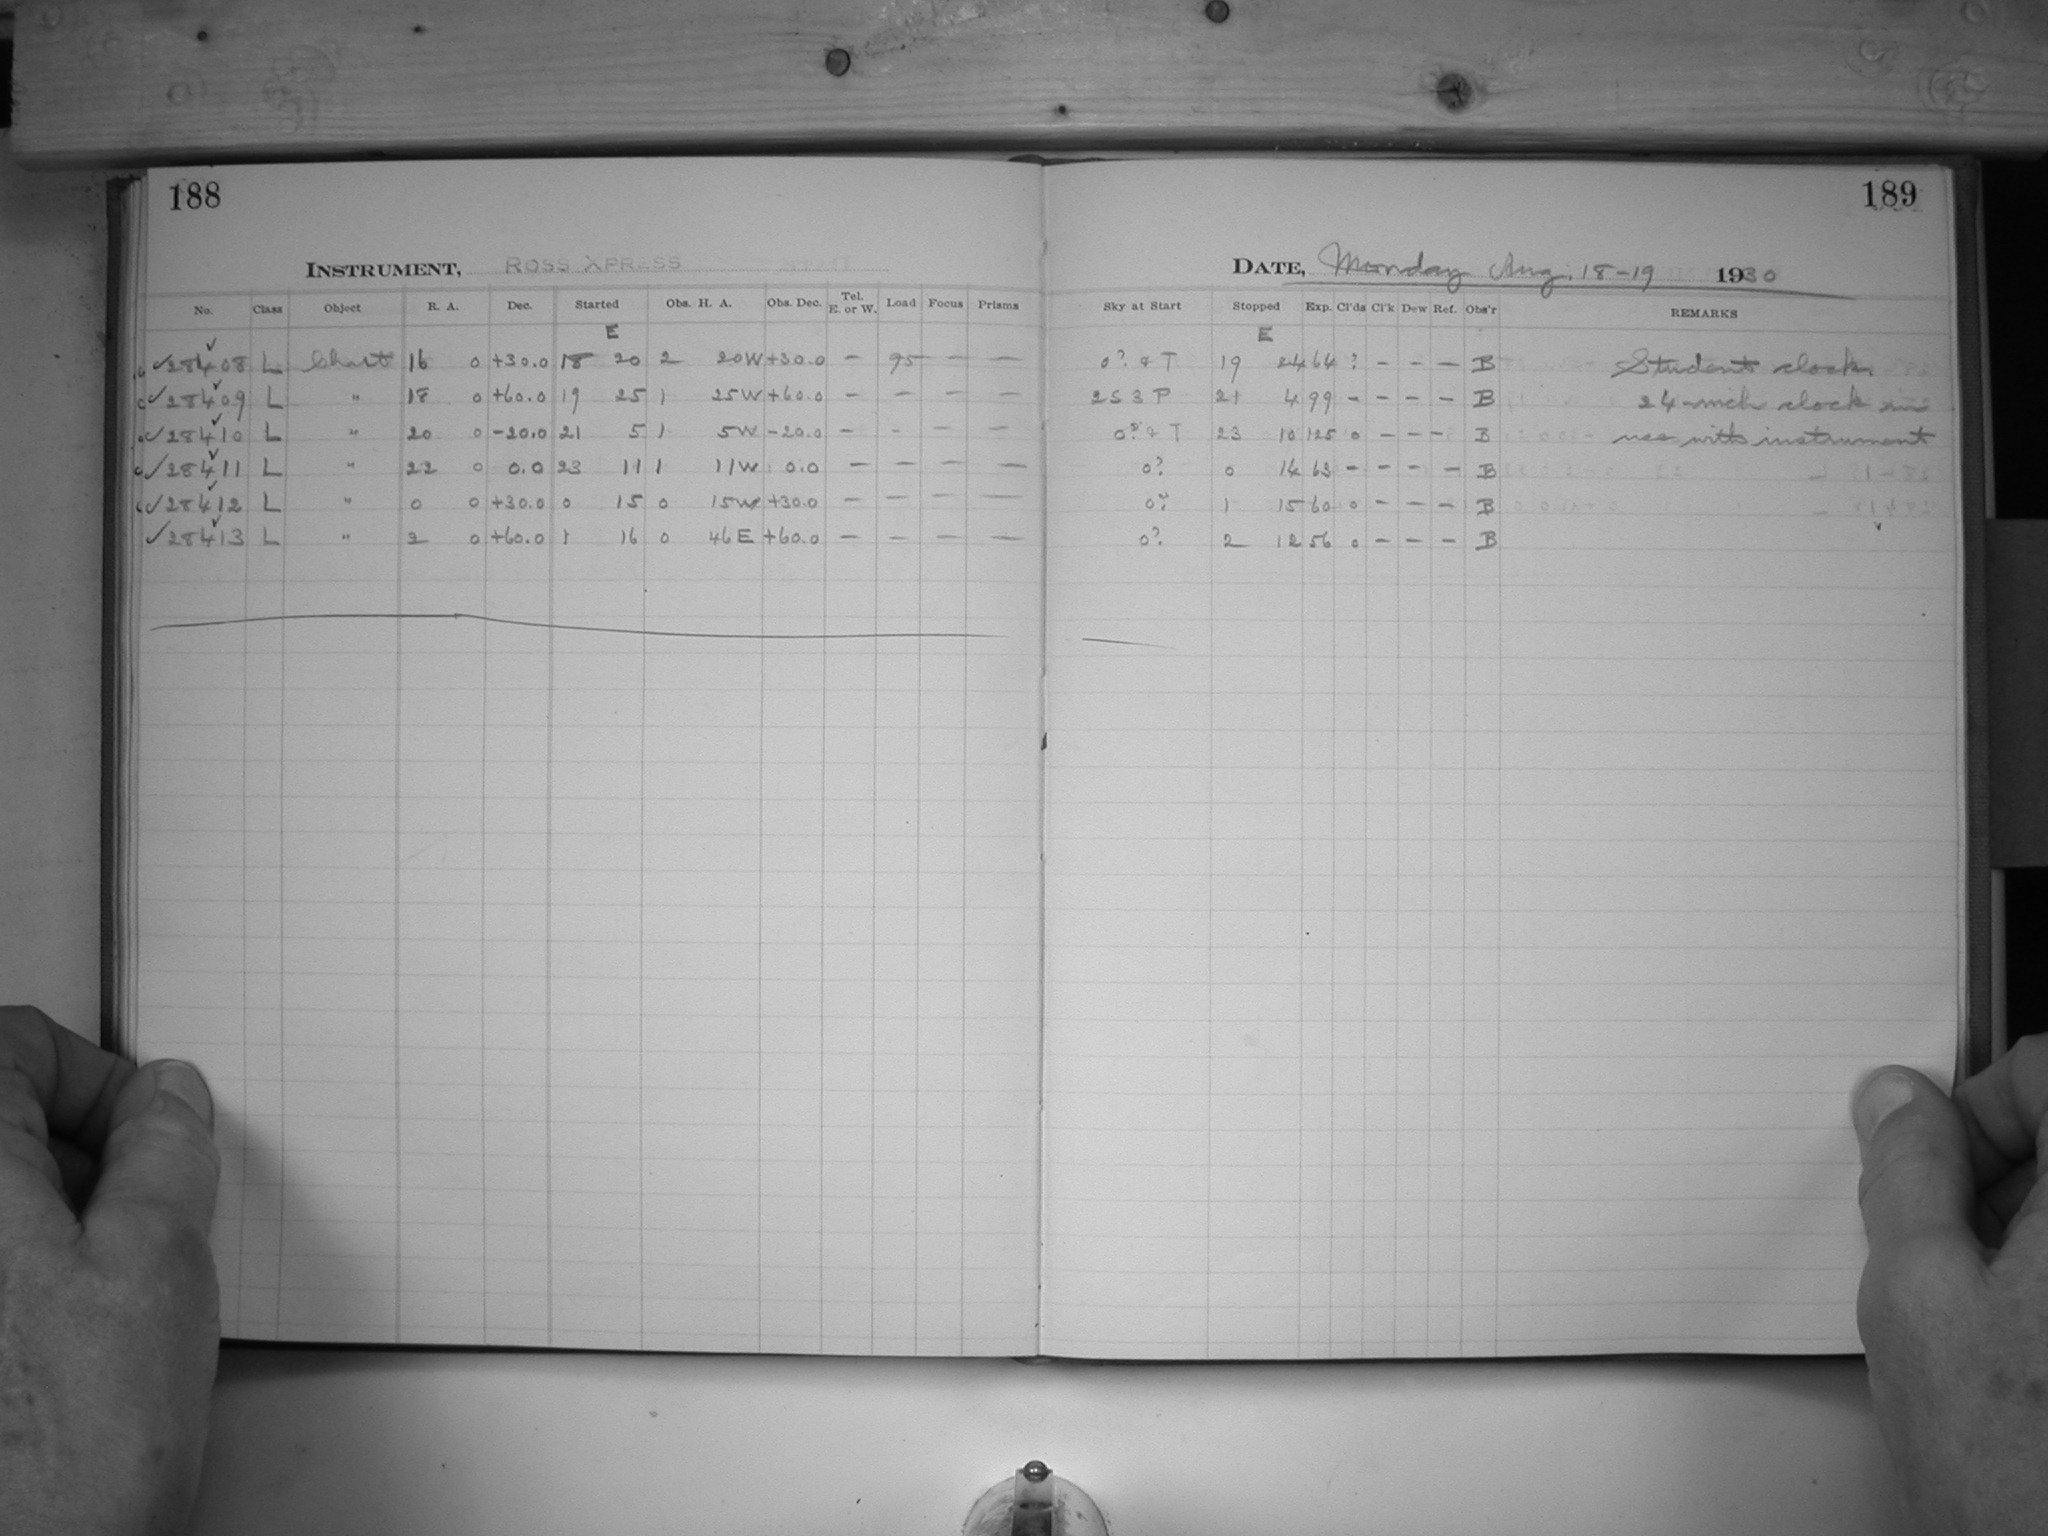 188
189
INSTRUMENT, ROSS XPRESS
DATE, Monday Aug. 18-19 1930
No. Class Object R. A. Dec. Started Obs. H. A. Obs. Dec. Tel. E. or W. Load Focus Prisms Sky at Start Stopped Exp. Cl'ds Cl'k Dew Ref. Obs'r REMARKS
E E
✓28408 L Chart 16 0 +30.0 18 20 2 20W +30.0 — 95 — — 0? & T 19 24 64 ? - - - B Student clock.
✓28409 L " 18 0 +60.0 19 25 1 25W +60.0 — — — — 2S3P 21 4 99 - - - - B 24-inch clock in
✓28410 L " 20 0 -20.0 21 5 1 5W -20.0 — - — — 0? & T 23 10 125 0 - - - B use with instrument
✓28411 L " 22 0 0.0 23 11 1 11W 0.0 — — — — 0? 0 14 63 - - - - B
✓28412 L " 0 0 +30.0 0 15 0 15W +30.0 — — — — 0? 1 15 60 0 - - - B
✓28413 L " 2 0 +60.0 1 16 0 46E +60.0 — — — — 0? 2 12 56 0 - - - B